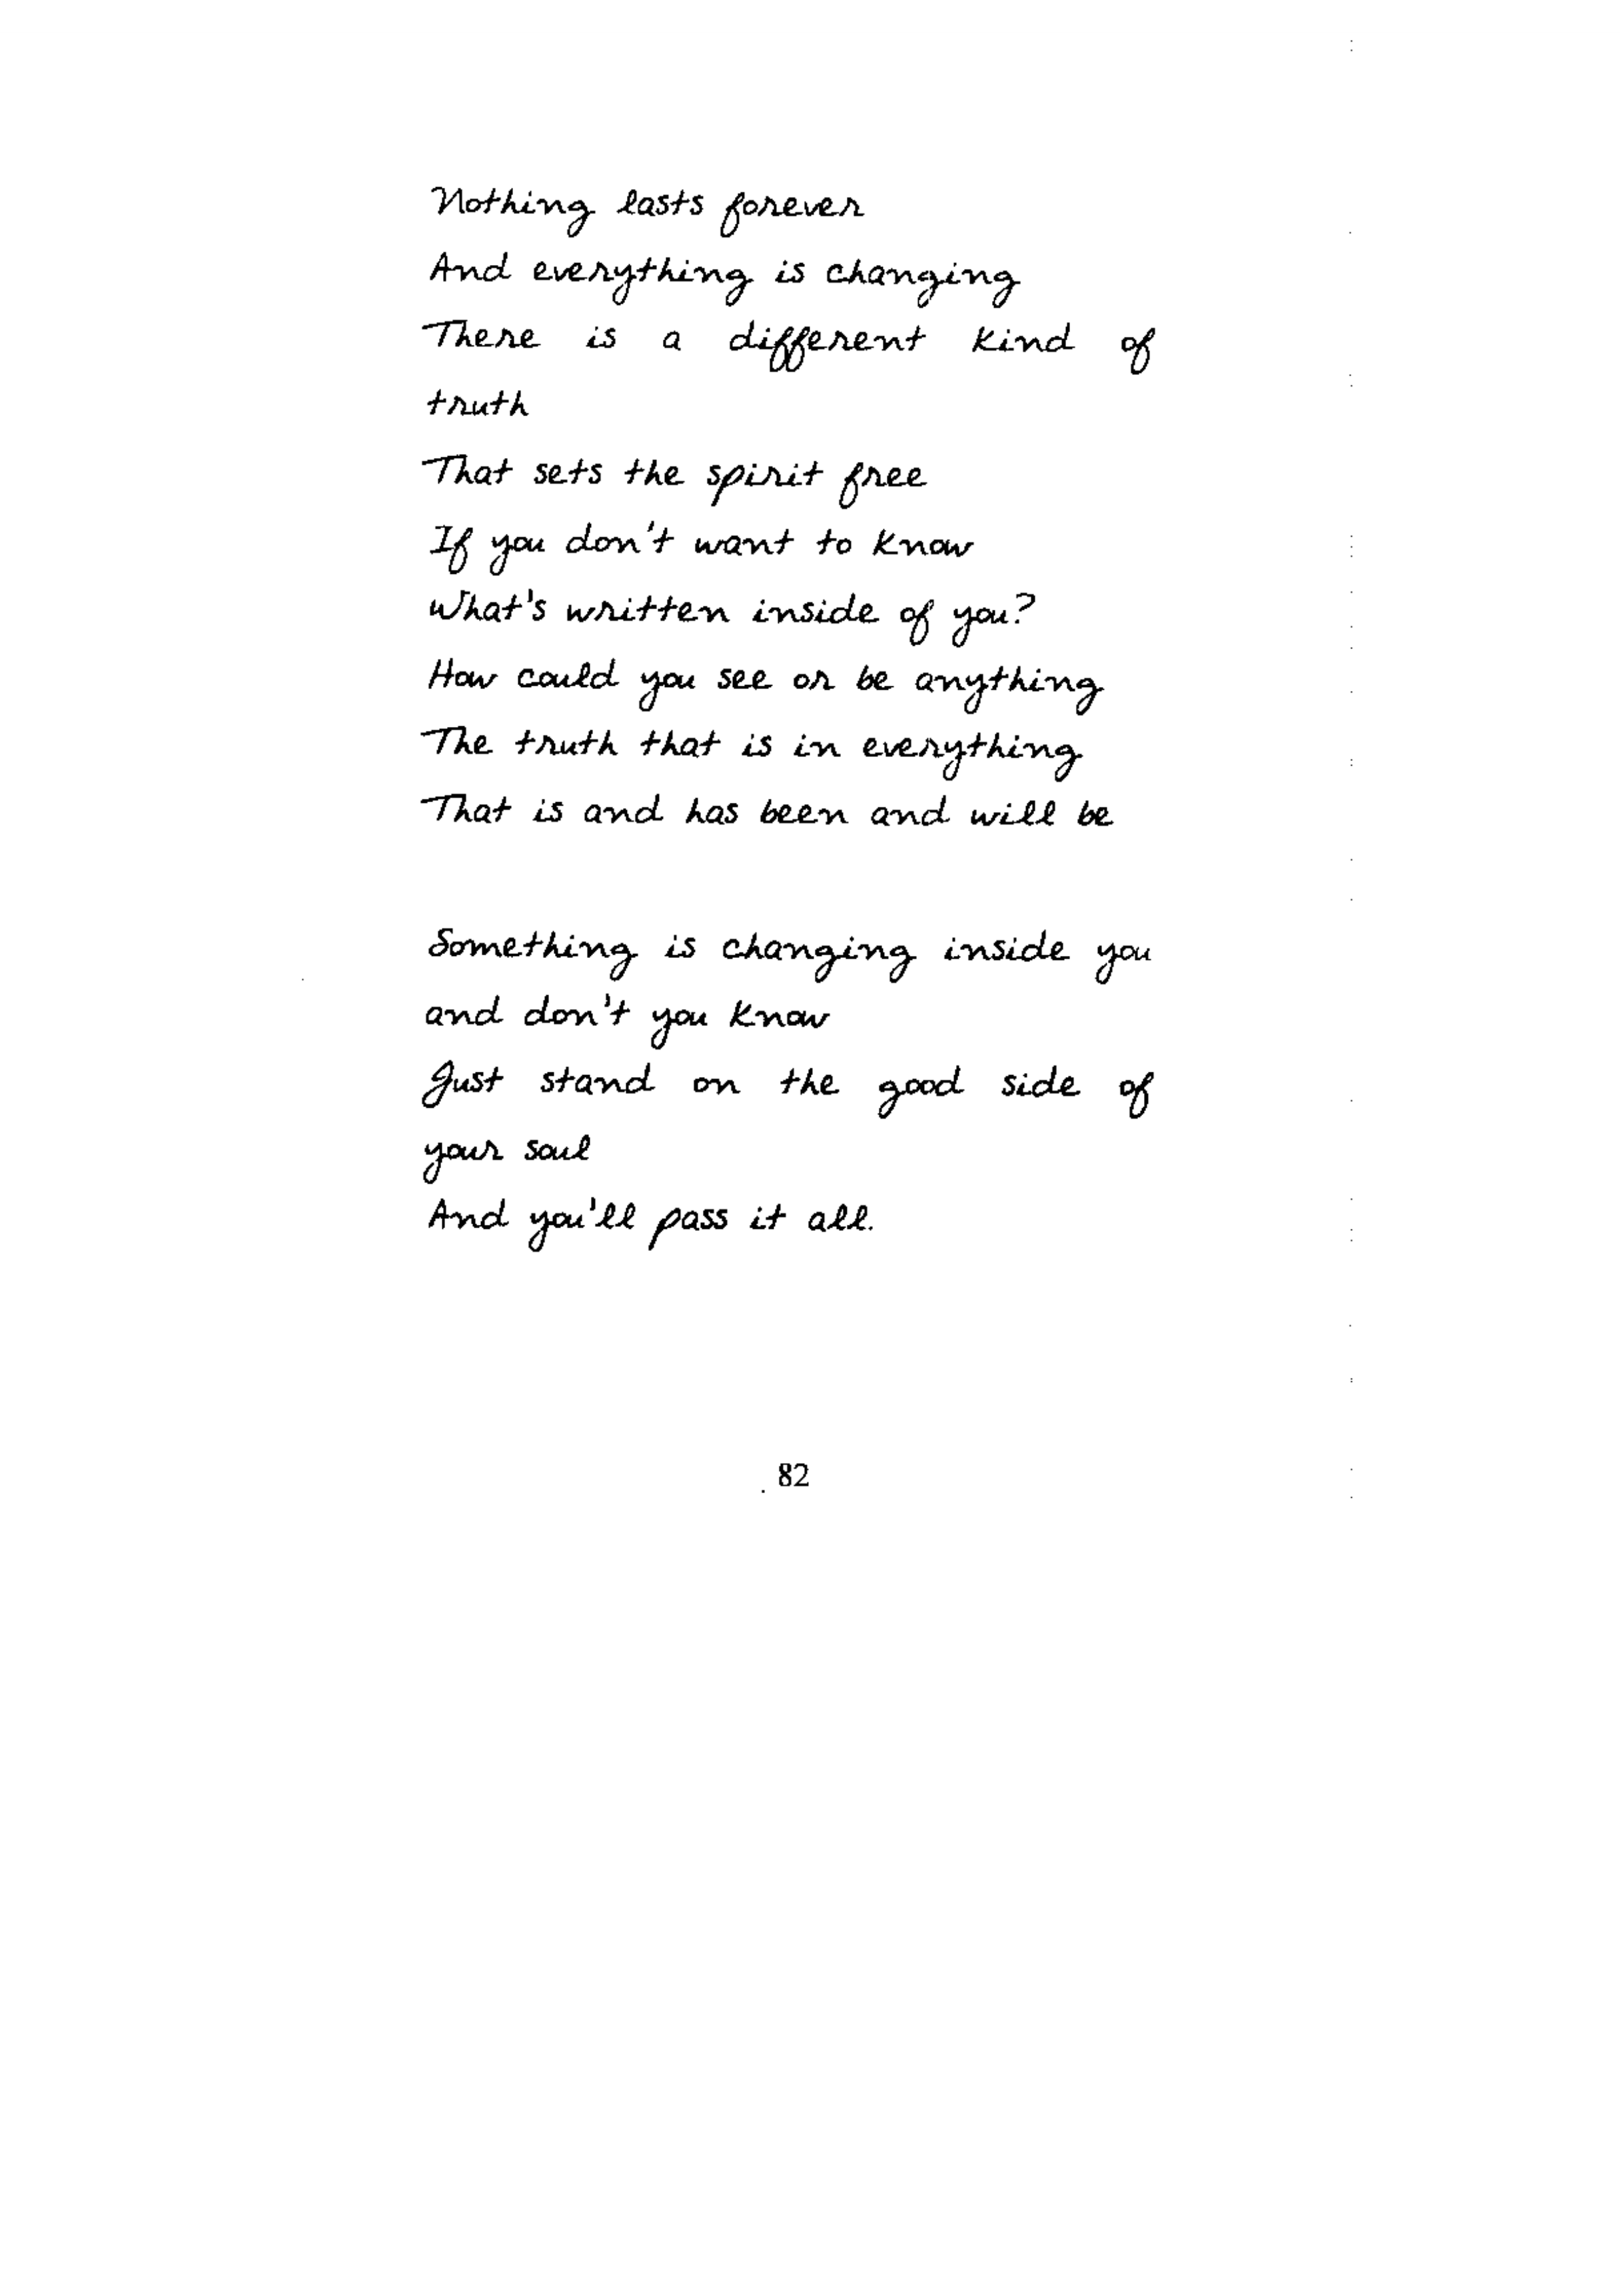 Nothing lasts forever
And everything is changing
There is a different kind of
truth
That sets the spirit free
If you don't want to know
What's written inside of you?
How could you see or be anything
The truth that is in everything
That is and has been and will be
Something is changing inside you
and don't you know
Just stand on the good side of
your soul
And you'll pass it all.
82